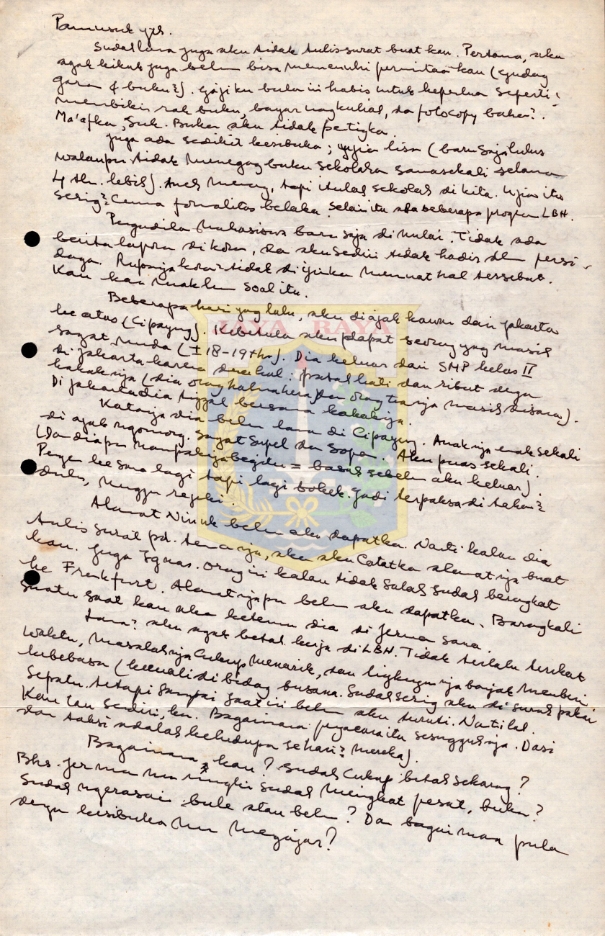 Pamusuk yth.
Sudah lama juga aku tidak tulis surat buat kau. Pertama, aku
agak kikuk juga belum bisa memenuhi permintaan kau (gudang
garam & buku2). Gajiku bulan ini habis untuk keperluan seperti:
membikin rak buku, bayar uang kuliah, dan fotocopy bahan2.
Ma'afkan, Suk. Bukan aku tidak
Juga ada sedikit kesibukan; ujian lisan (baru saja lulus
walaupun tidak memegang buku sekolahan samasekali selama
4 thn. lebih). Aneh memang, tapi itulah sekolah di kita. Ujian itu
sering2 cuma formalitas belaka. Selain itu ada beberapa program LBH.
Pengadilan mahasiswa baru saja dimulai. Tidak ada
berita laporan di koran, dan aku sendiri tidak hadir dlm persi-
dangan. Rupanya koran tidak diijinkan memuat hal tersebut.
Kau kan maklum soal itu.
JAYA RAYA
Beberapa hari yang lalu, aku diajak kawan dari Jakarta
ke atas (Cipayung). Kebetulan aku dapat seorang yang masih
sangat muda (± 18-19 th). Dia keluar dari SMP kelas II
di Jakarta karena : patah hati dan ribut dengan
kakaknya (dia orang dan orang tuanya masih disana).
Di Jakarta dia tinggal bersama kakaknya.
Katanya dia belum lama di Cipayung. Anaknya enak sekali
di ajak ngomong. Sangat supel dan sopan. Aku puas sekali.
(Dan diapun nampaknya begitu basah sebelum aku keluar).
Pengen ke sana lagi tapi lagi bokek. Jadi terpaksa di tahan2
dulu, nunggu rejeki.
Alamat Ninuk belum aku dapatkan. Nanti kalau dia
tulis surat pd. aku akan catatkan alamatnya buat
kau. Juga Ignas. Orang ini kalau tidak salah sudah berangkat
ke Frankfurt. Alamatnya pun belum aku dapatkan. Barangkali
suatu saat kau akan ketemu dia di Jerman sana.
aku agak betah kerja di LBH. Tidak terlalu terikat
waktu, masalahnya cukup menarik, dan lingkungannya banyak memberi
kebebasan (kecuali di bidang busana. Sudah sering aku di suruh pakai
sepatu, tetapi sampai saat ini belum aku turuti.
Kau tau sendiri, kan. Bagaimana pengacara itu sesungguhnya. Dasi
dan taksi adalah kehidupan sehari2 mereka).
Bagaimana2 kau? Sudah cukup betah sekarang?
Bhs. Jerman mu mungkin sudah meningkat pesat, bukan?
Sudah ngerasain bule atau belum? Dan bagaimana pula
dengan kesibukan mu mengajar?